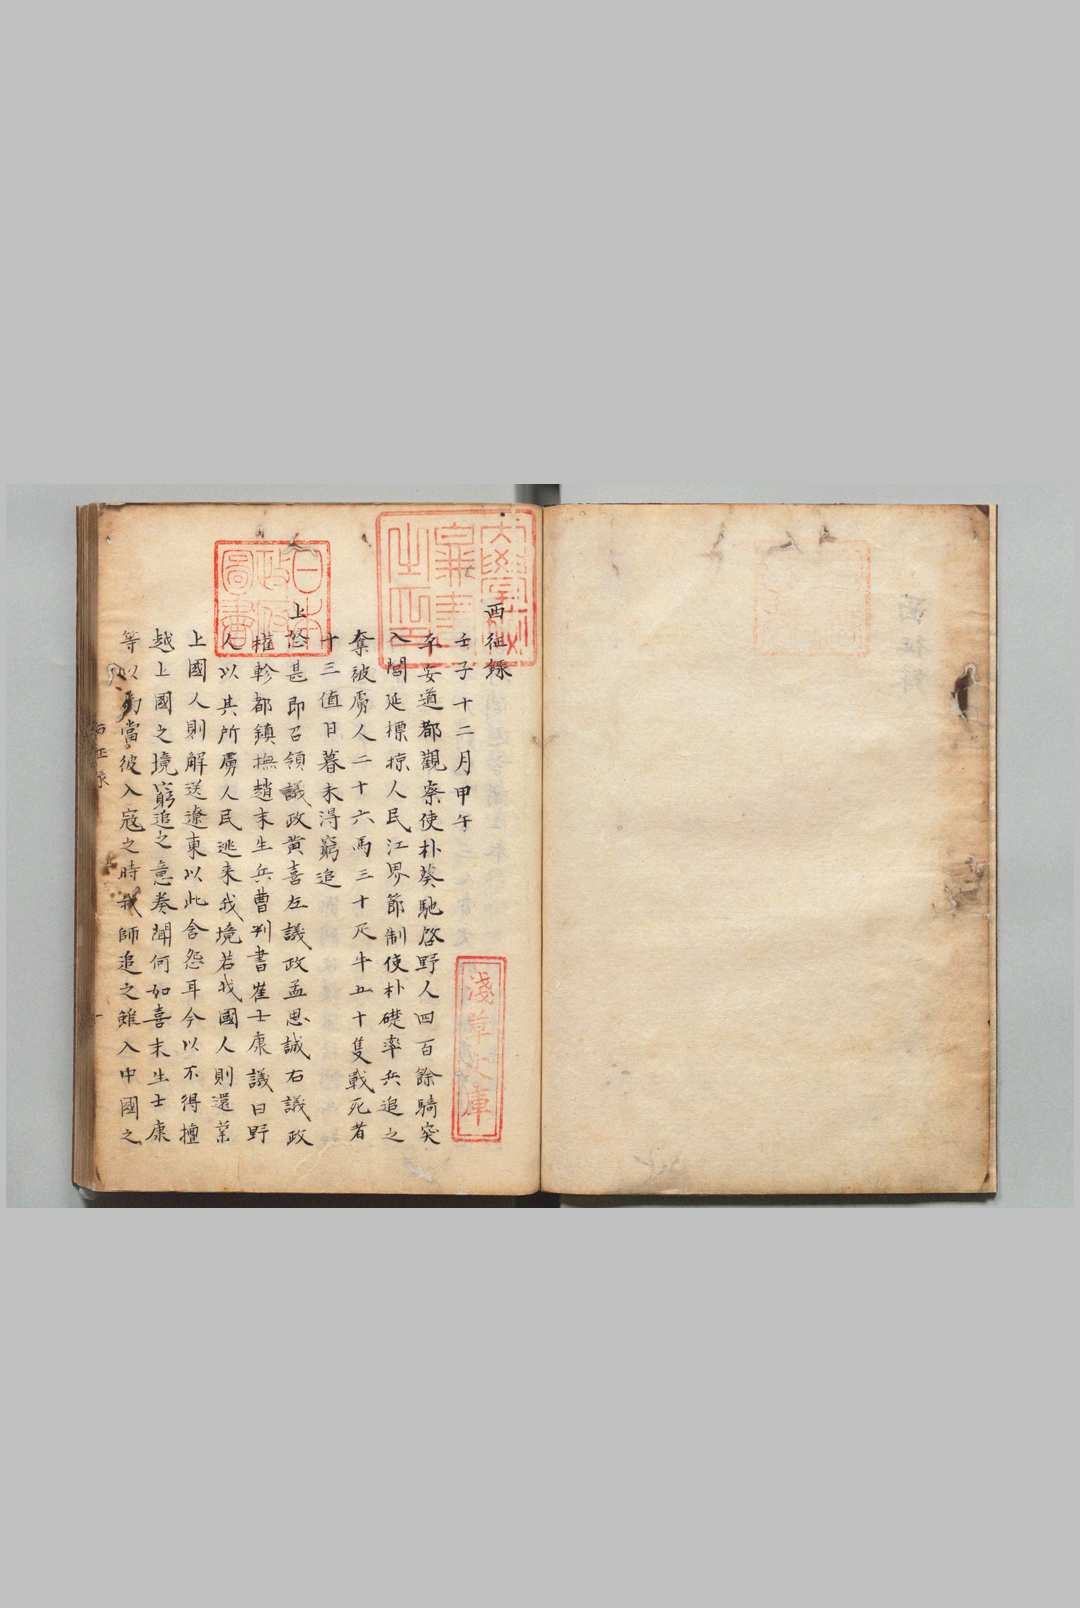 西征錄
壬子十二月甲午
平安道都觀察使朴葵馳啓野人四百餘騎突
入閭延摽掠人民江界節制使朴礎率兵追之
奪被虜人二十六馬三十疋牛五十隻戰死者
十三值日暮未得窮追
上怒甚即召領議政黃喜左議政孟思誠右議政
權軫都鎮撫趙末生兵曹判書崔士康議曰野
人以其所虜人民逃來我境若我國人則還業
上國人則解送遼東以此含怨耳今以不得擅
越上國之境窮追之意奏聞何如喜末生士康
等以爲當彼入寇之時我師追之雖入中國之
日本政府圖書
淺草文庫